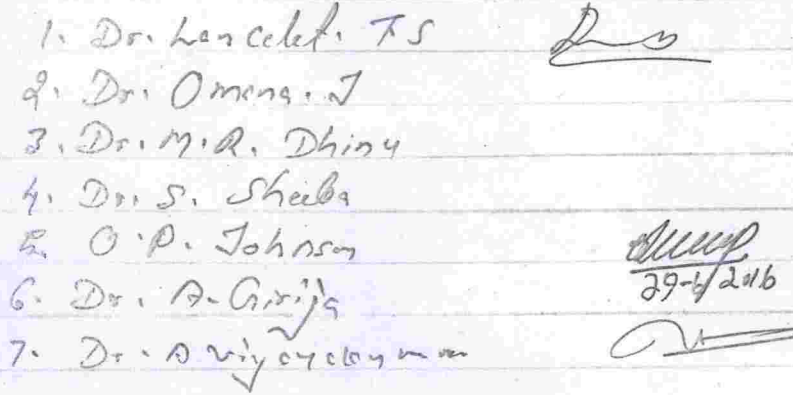 1. Dr. Lancelet. T S
2. Dr. Omana. J
3. Dr. M. R. Dhinu
4. Dr. S. Sheeba
5. O. P. Johnson
29-6/2016
6. Dr. A. Girija
7. Dr. A